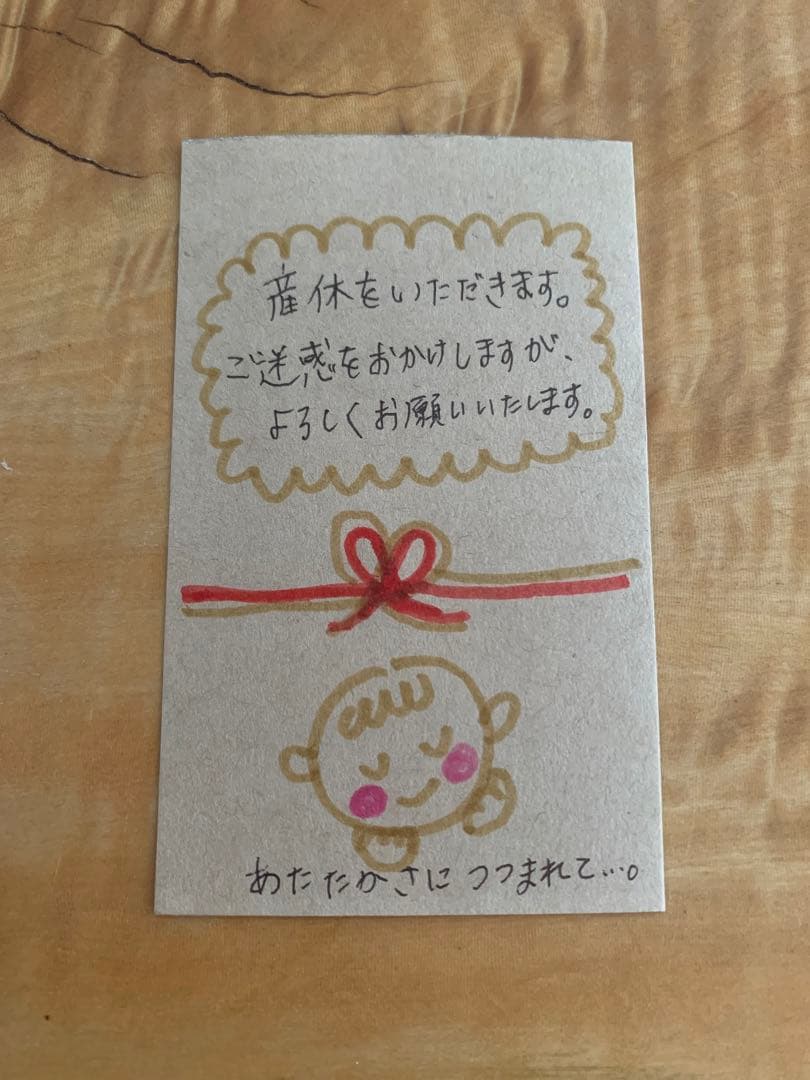 産休をいただきます。
ご迷惑をおかけしますが、
よろしくお願いいたします。
あたたかさにつつまれて…。